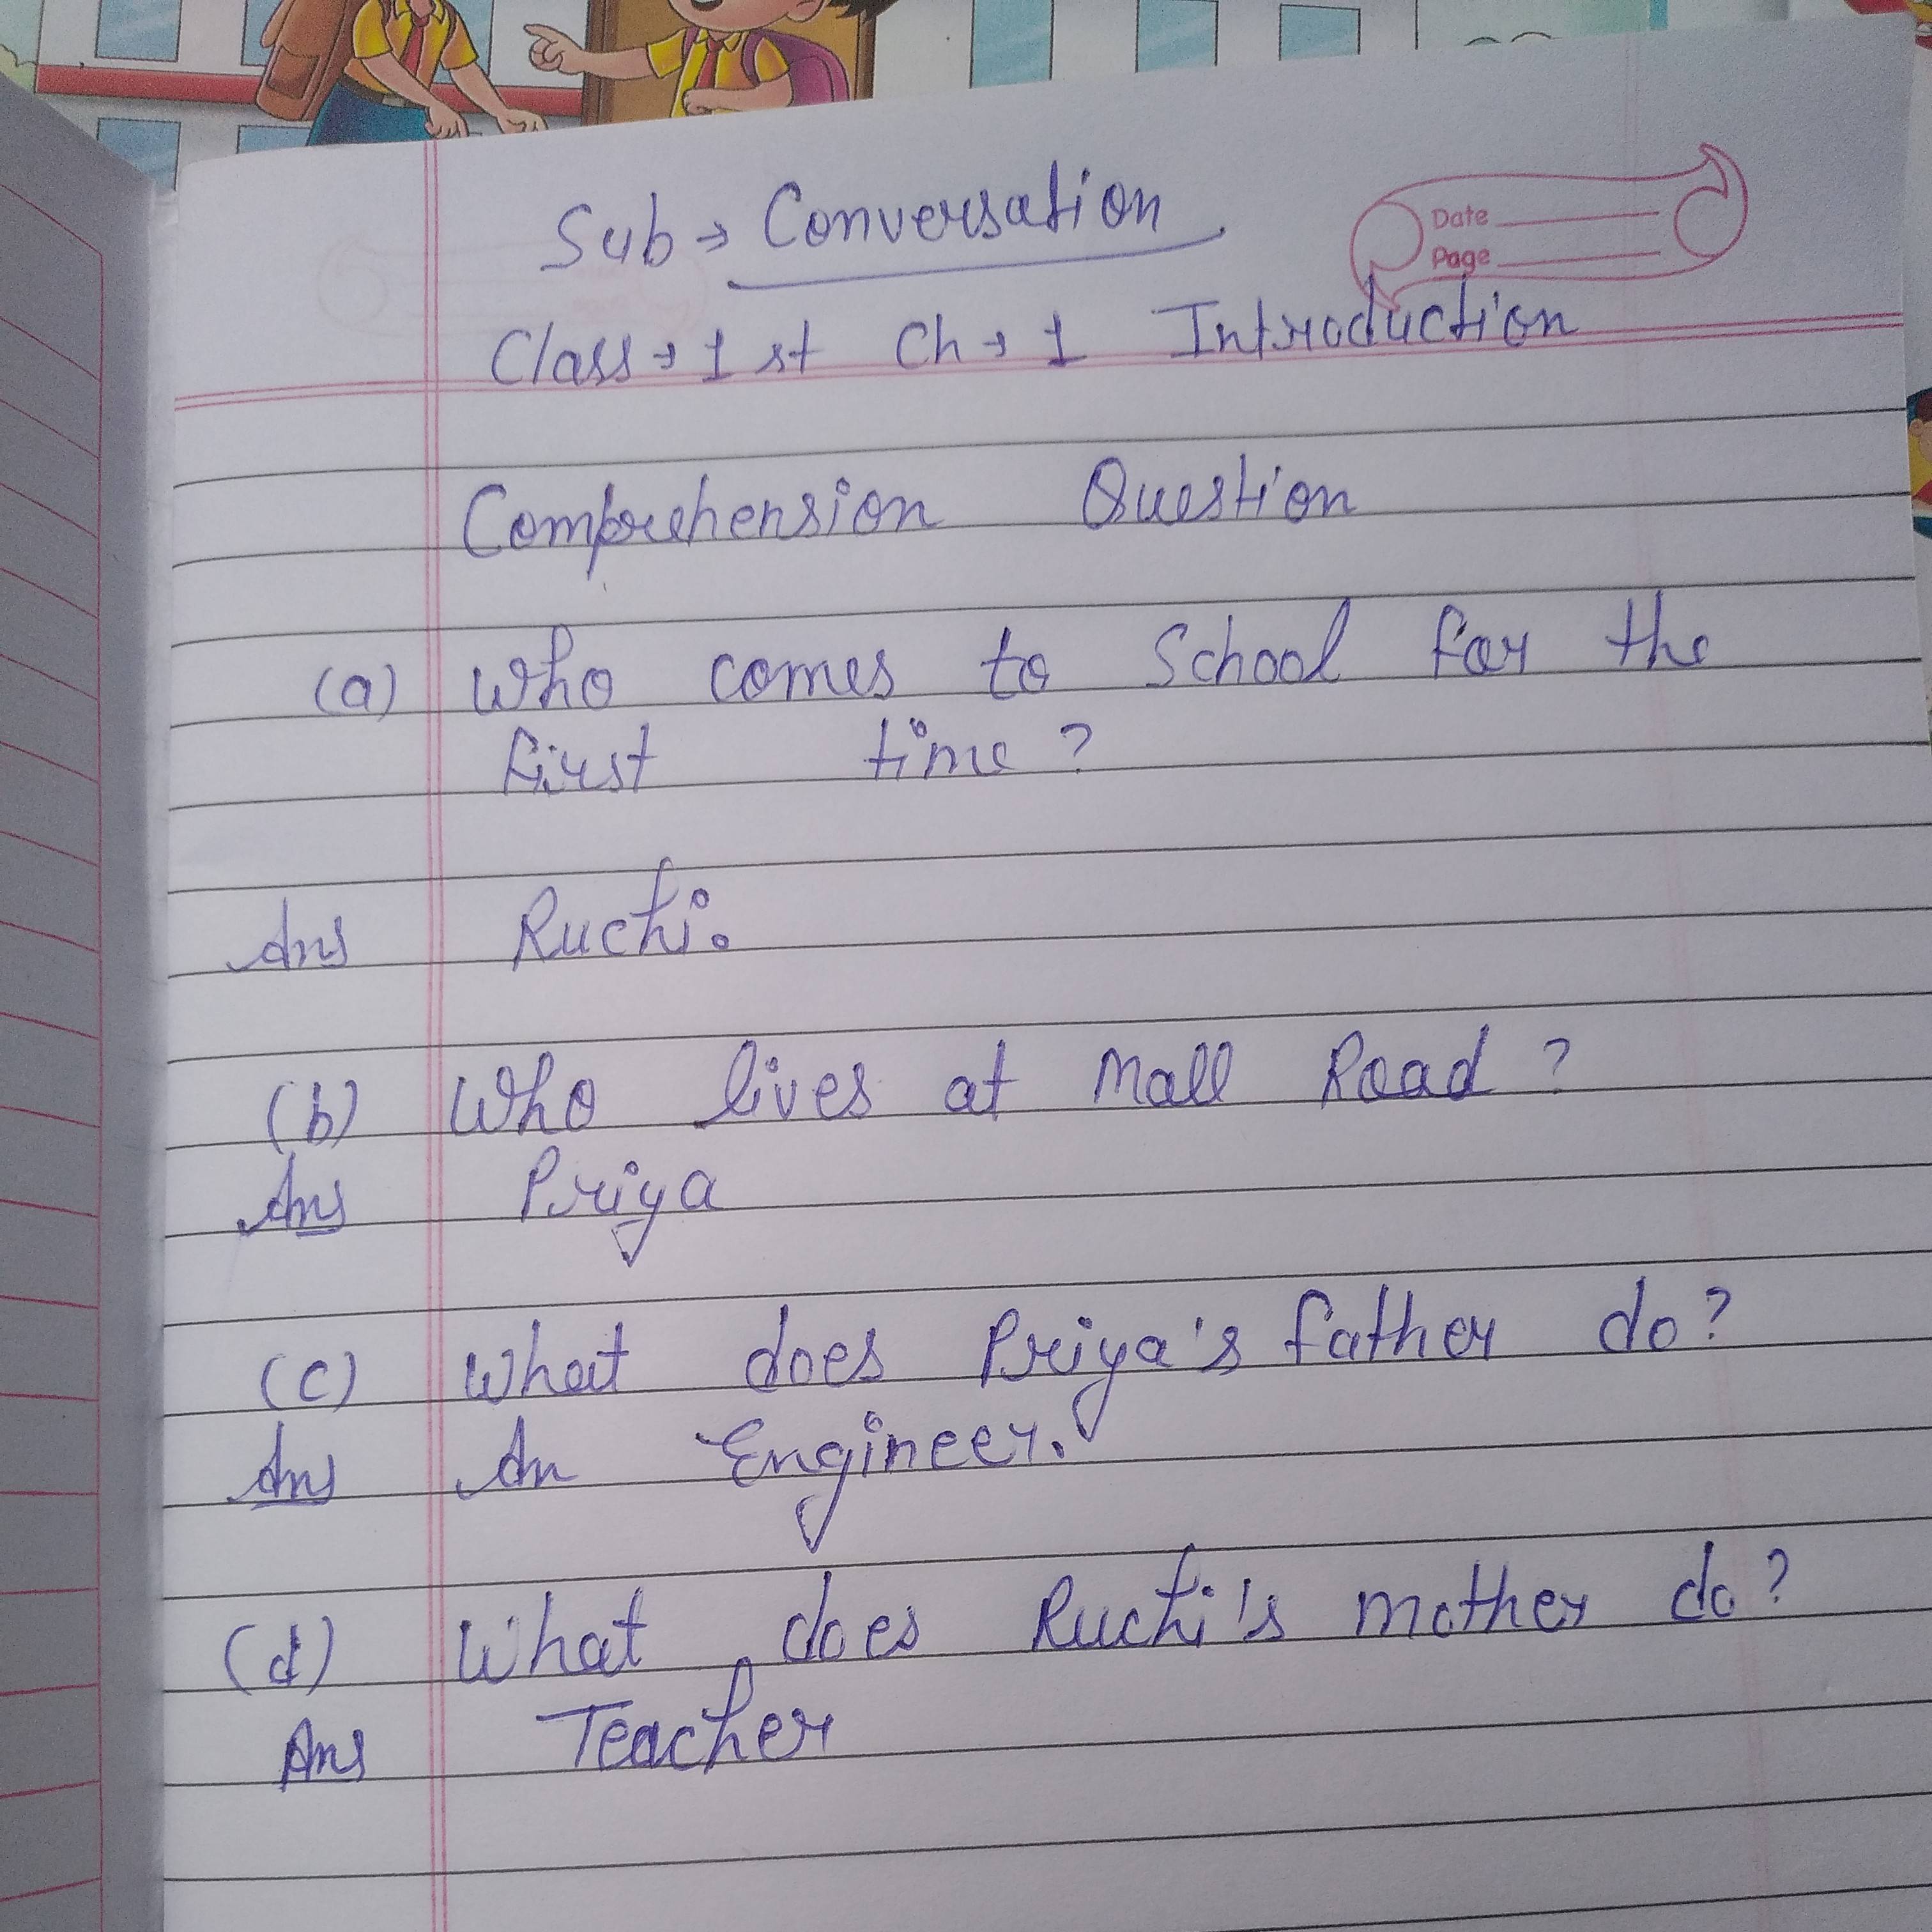 Sub → Conversation
Date
Page
Class → 1 st Ch → 1 Introduction
Comprehension Question
(a) Who comes to School for the
first time ?
Ans Ruchi.
(b) Who lives at Mall Road ?
Ans Priya
(c) What does Priya's father do ?
Ans An Engineer.
(d) What does Ruchi's mother do ?
Ans Teacher